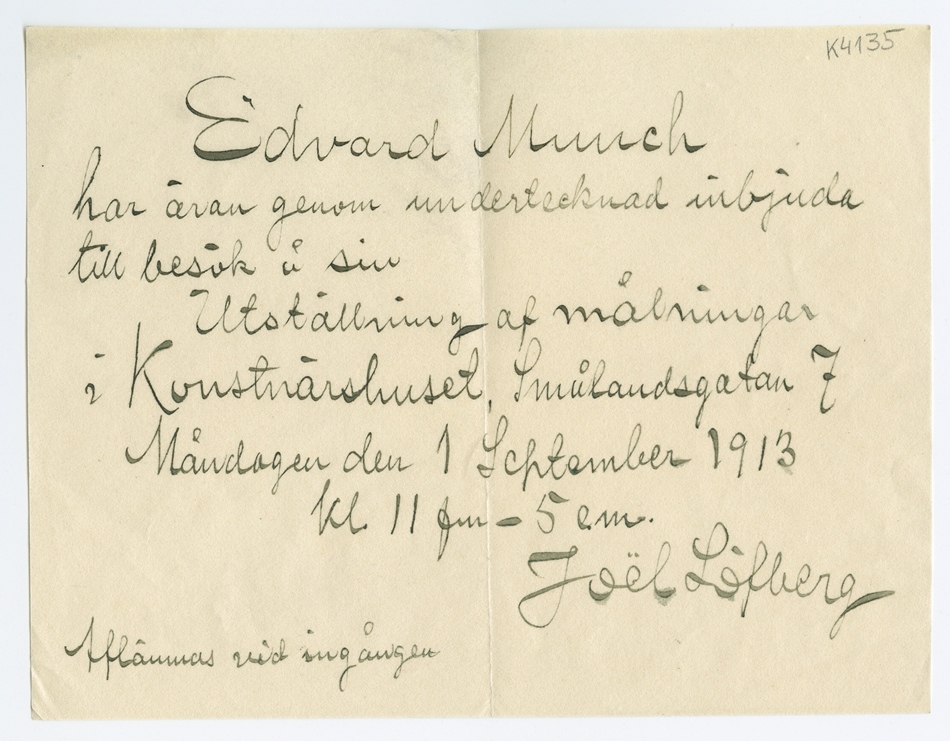 K4135
Edvard Munch
har äran genom undertecknad inbjuda
till besök å sin
Utställning af målningar
i Konstnärshuset, Smålandsgatan 7
Måndagen den 1 September 1913
kl. 11 fm – 5 em.
Joël Löfberg
Aflämnas vid ingången